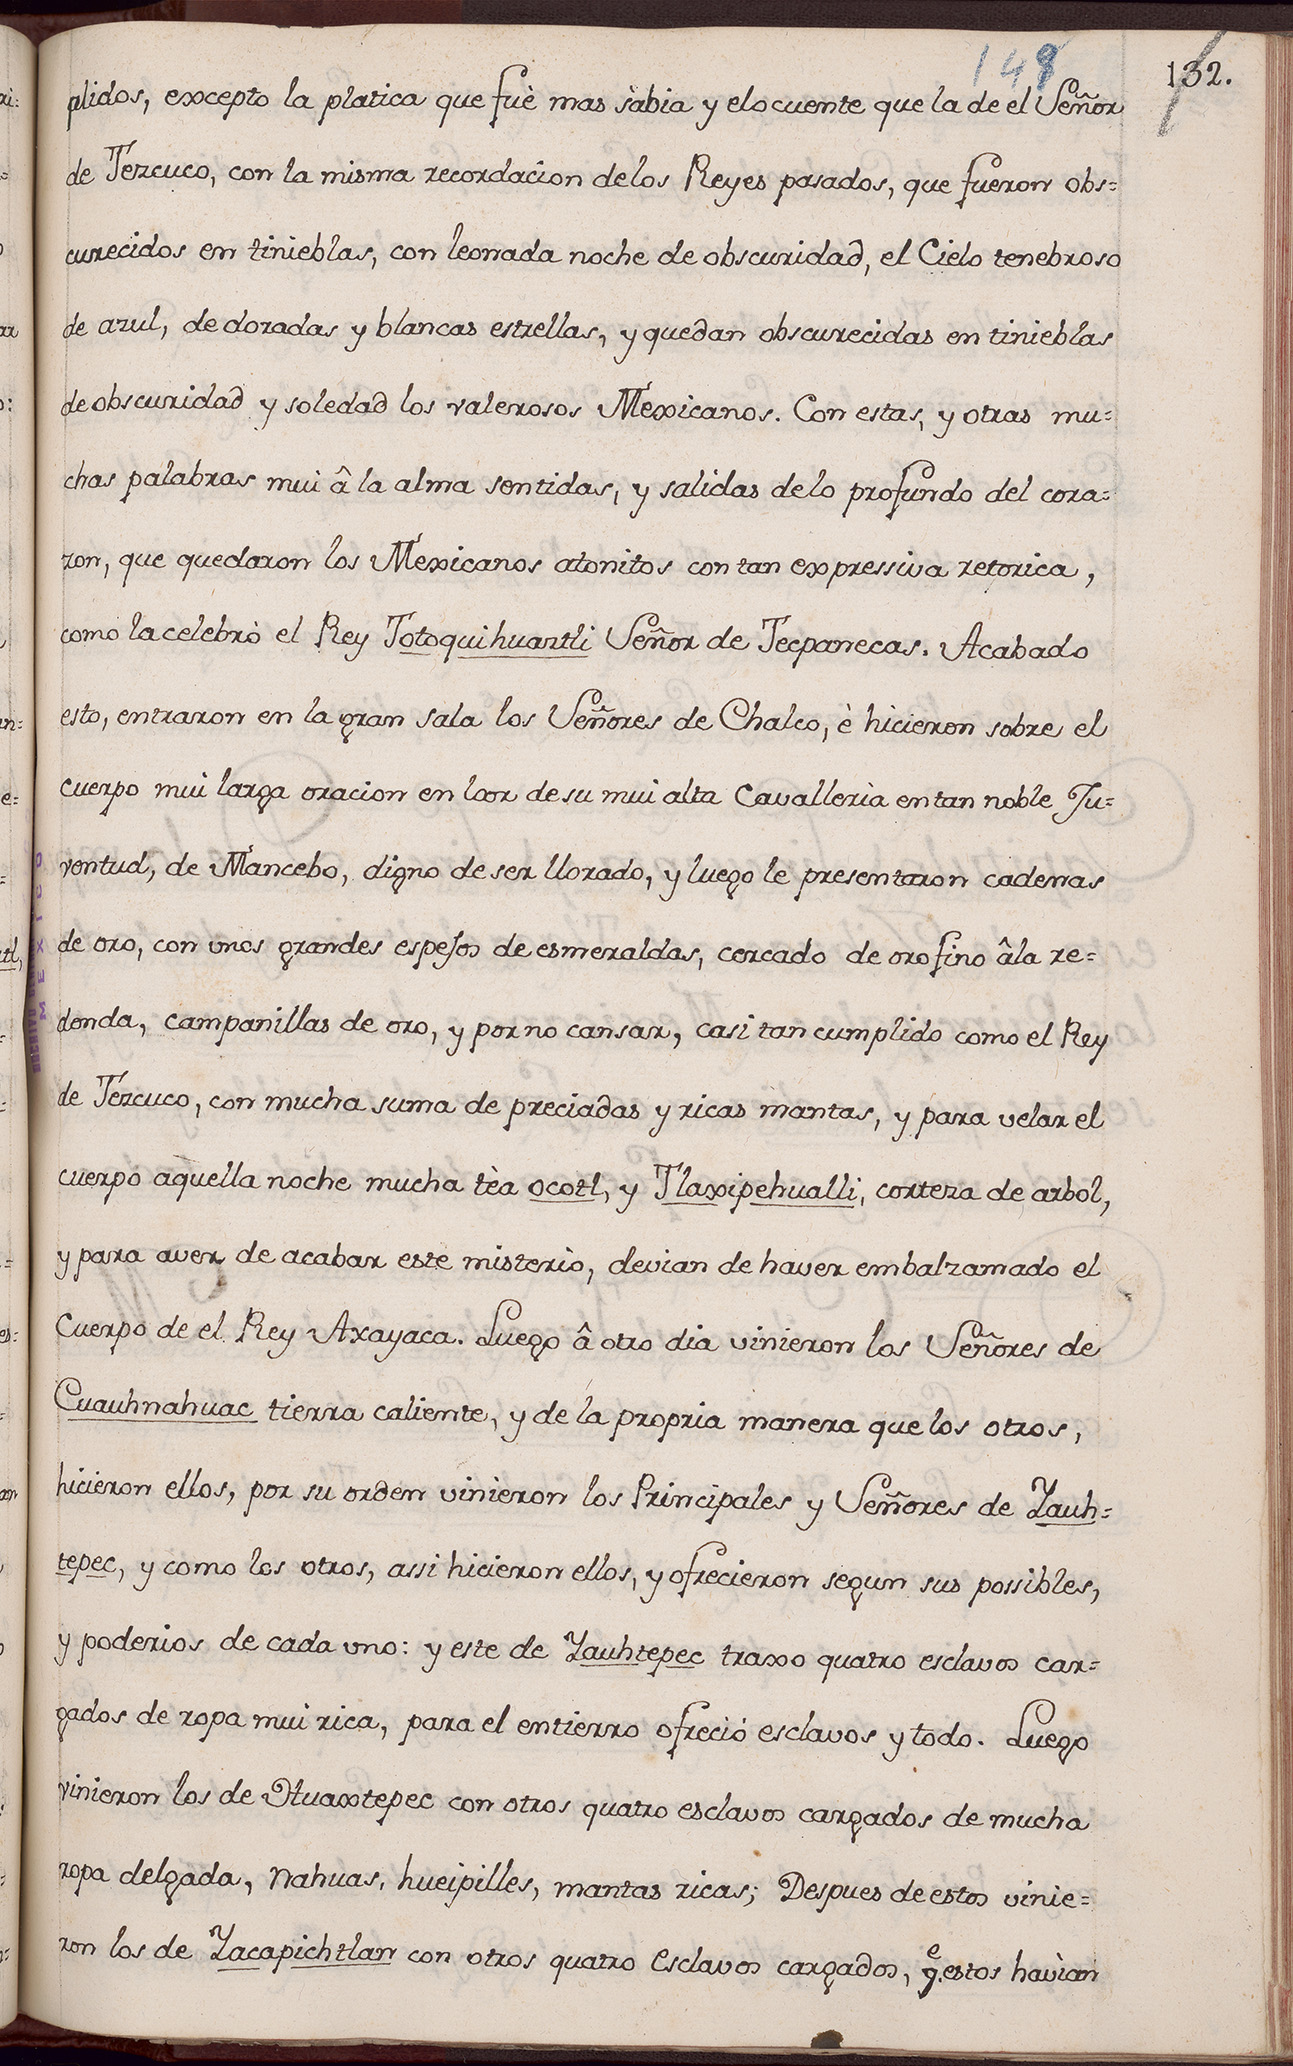 148
132.
plidos, excepto la platica que fuè mas sàbia y elocuente que la de el Señor
de Tezcuco, con la misma recordacion delos Reyes pasados, que fueron obs=
curecidos en tinieblas, con leonada noche de obscuridad, el Cielo tenebroso
de azul, de doradas y blancas estrellas, y quedan obscurecidas en tinieblas
de obscuridad y soledad los valerosos Mexicanos. Con estas, y otras mu=
chas palabras mui â la alma sentidas, y salidas delo profundo del cora=
zon, que quedaron los Mexicanos atonitos con tan expressiva retorica,
como la celebrò el Rey Totoquihuaztli Señor de Tecpanecas. Acabado
esto, entraron en la gran sala los Señores de Chalco, è hicieron sobre el
cuerpo mui larga oracion en loor de su mui alta Cavallerìa en tan noble Ju=
ventud, de Mancebo, digno de ser llorado, y luego le presentaron cadenas
de oro, con unos grandes espejos de esmeraldas, cercado de oro fino âla re=
donda, campanillas de oro, y por no cansar, casi tan cumplido como el Rey
de Tezcuco, con mucha suma de preciadas y ricas mantas, y para velar el
cuerpo aquella noche mucha tèa ocotl, y Tlaxipehualli, corteza de arbol,
y para aver de acabar este misterio, devian de haver embalzamado el
Cuerpo de el Rey Axayaca. Luego â otro dia vinieron los Señores de
Cuauhnahuac tierra caliente, y de la propria manera que los otros,
hicieron ellos, por su orden vinieron los Principales y Señores de Yauh=
tepec, y como los otros, assi hicieron ellos, y ofrecieron segun sus possibles,
y poderios de cada uno: y este de Yauhtepec traxo quatro esclavos car=
gados de ropa mui rica, para el entierro ofreciò esclavos y todo. Luego
vinieron los de Huaxtepec con otros quatro esclavos cargados de mucha
ropa delgada, Nahuas, hueipilles, mantas ricas; Despues de estos vinie=
ron los de Yacapichtlan con otros quatro Esclavos cargados, q.e estos havìan